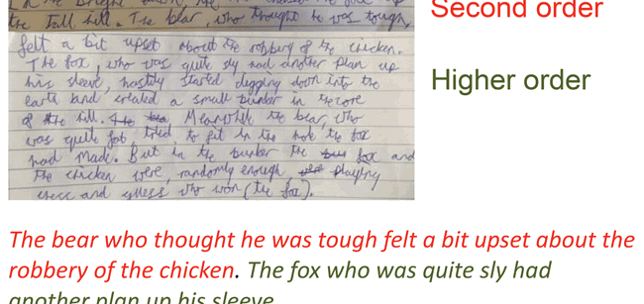 Second order
the tall hill. The bear, who thought he was tough,
felt a bit upset about the robbery of the chicken.
The fox, who was quite sly had another plan up
his sleeve, hastily started digging down into the
earth and created a small bunker in the core
of the hill. Meanwhile the bear, who
was quite fat tried to fit in the hole the fox
had made. But in the bunker the fox and
the chicken were, randomly enough, playing
chess and guess who won (the fox).
Higher order
The bear who thought he was tough felt a bit upset about the
robbery of the chicken. The fox who was quite sly had
another plan up his sleeve